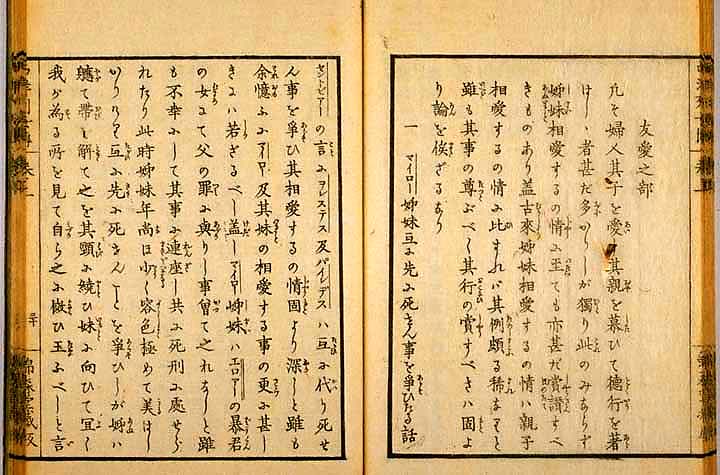 友愛之部
凡そ婦人其子を愛し其親を慕ひて德行を著
けし者甚だ多かりしが獨り此のみありず
姉妹相愛するの情ふ至ても亦甚だ賞讃すべ
きものあり盖古來姉妹相愛するの情ハ親子
相愛するの情ふ比すれバ其例頗る稀なれども
雖も其事の尊ぶべく其行の賞すべきハ固よ
り論を俟ざるあり
一 マイロー姉妹互ふ先ふ死せん事を爭ひたる話
の言ふヲレステス及パイレデスハ互ふ代り死せ
ん事を爭ひ其相愛するの情固より深しと雖も
余憶ふふマイロー及其妹の相愛する事の更ふ甚し
きふハ若ざるべし盖しマイロー姉妹ハエロアーの暴君
の女ふて父の罪ふ與りし事曾て之れなしと雖
も不幸ふして其事ふ連座し共ふ死刑ふ處せら
れたり此時姉妹年尚ほ少く容色極めて美はし
かりけり互ふ先ふ死せんことを爭ひしが姉ハ
纔て帶を解て之を其頸ふ繞ひ妹ふ向ひて宜く
我が為る所を見て自ら之ふ傚ひ玉ふべしと言